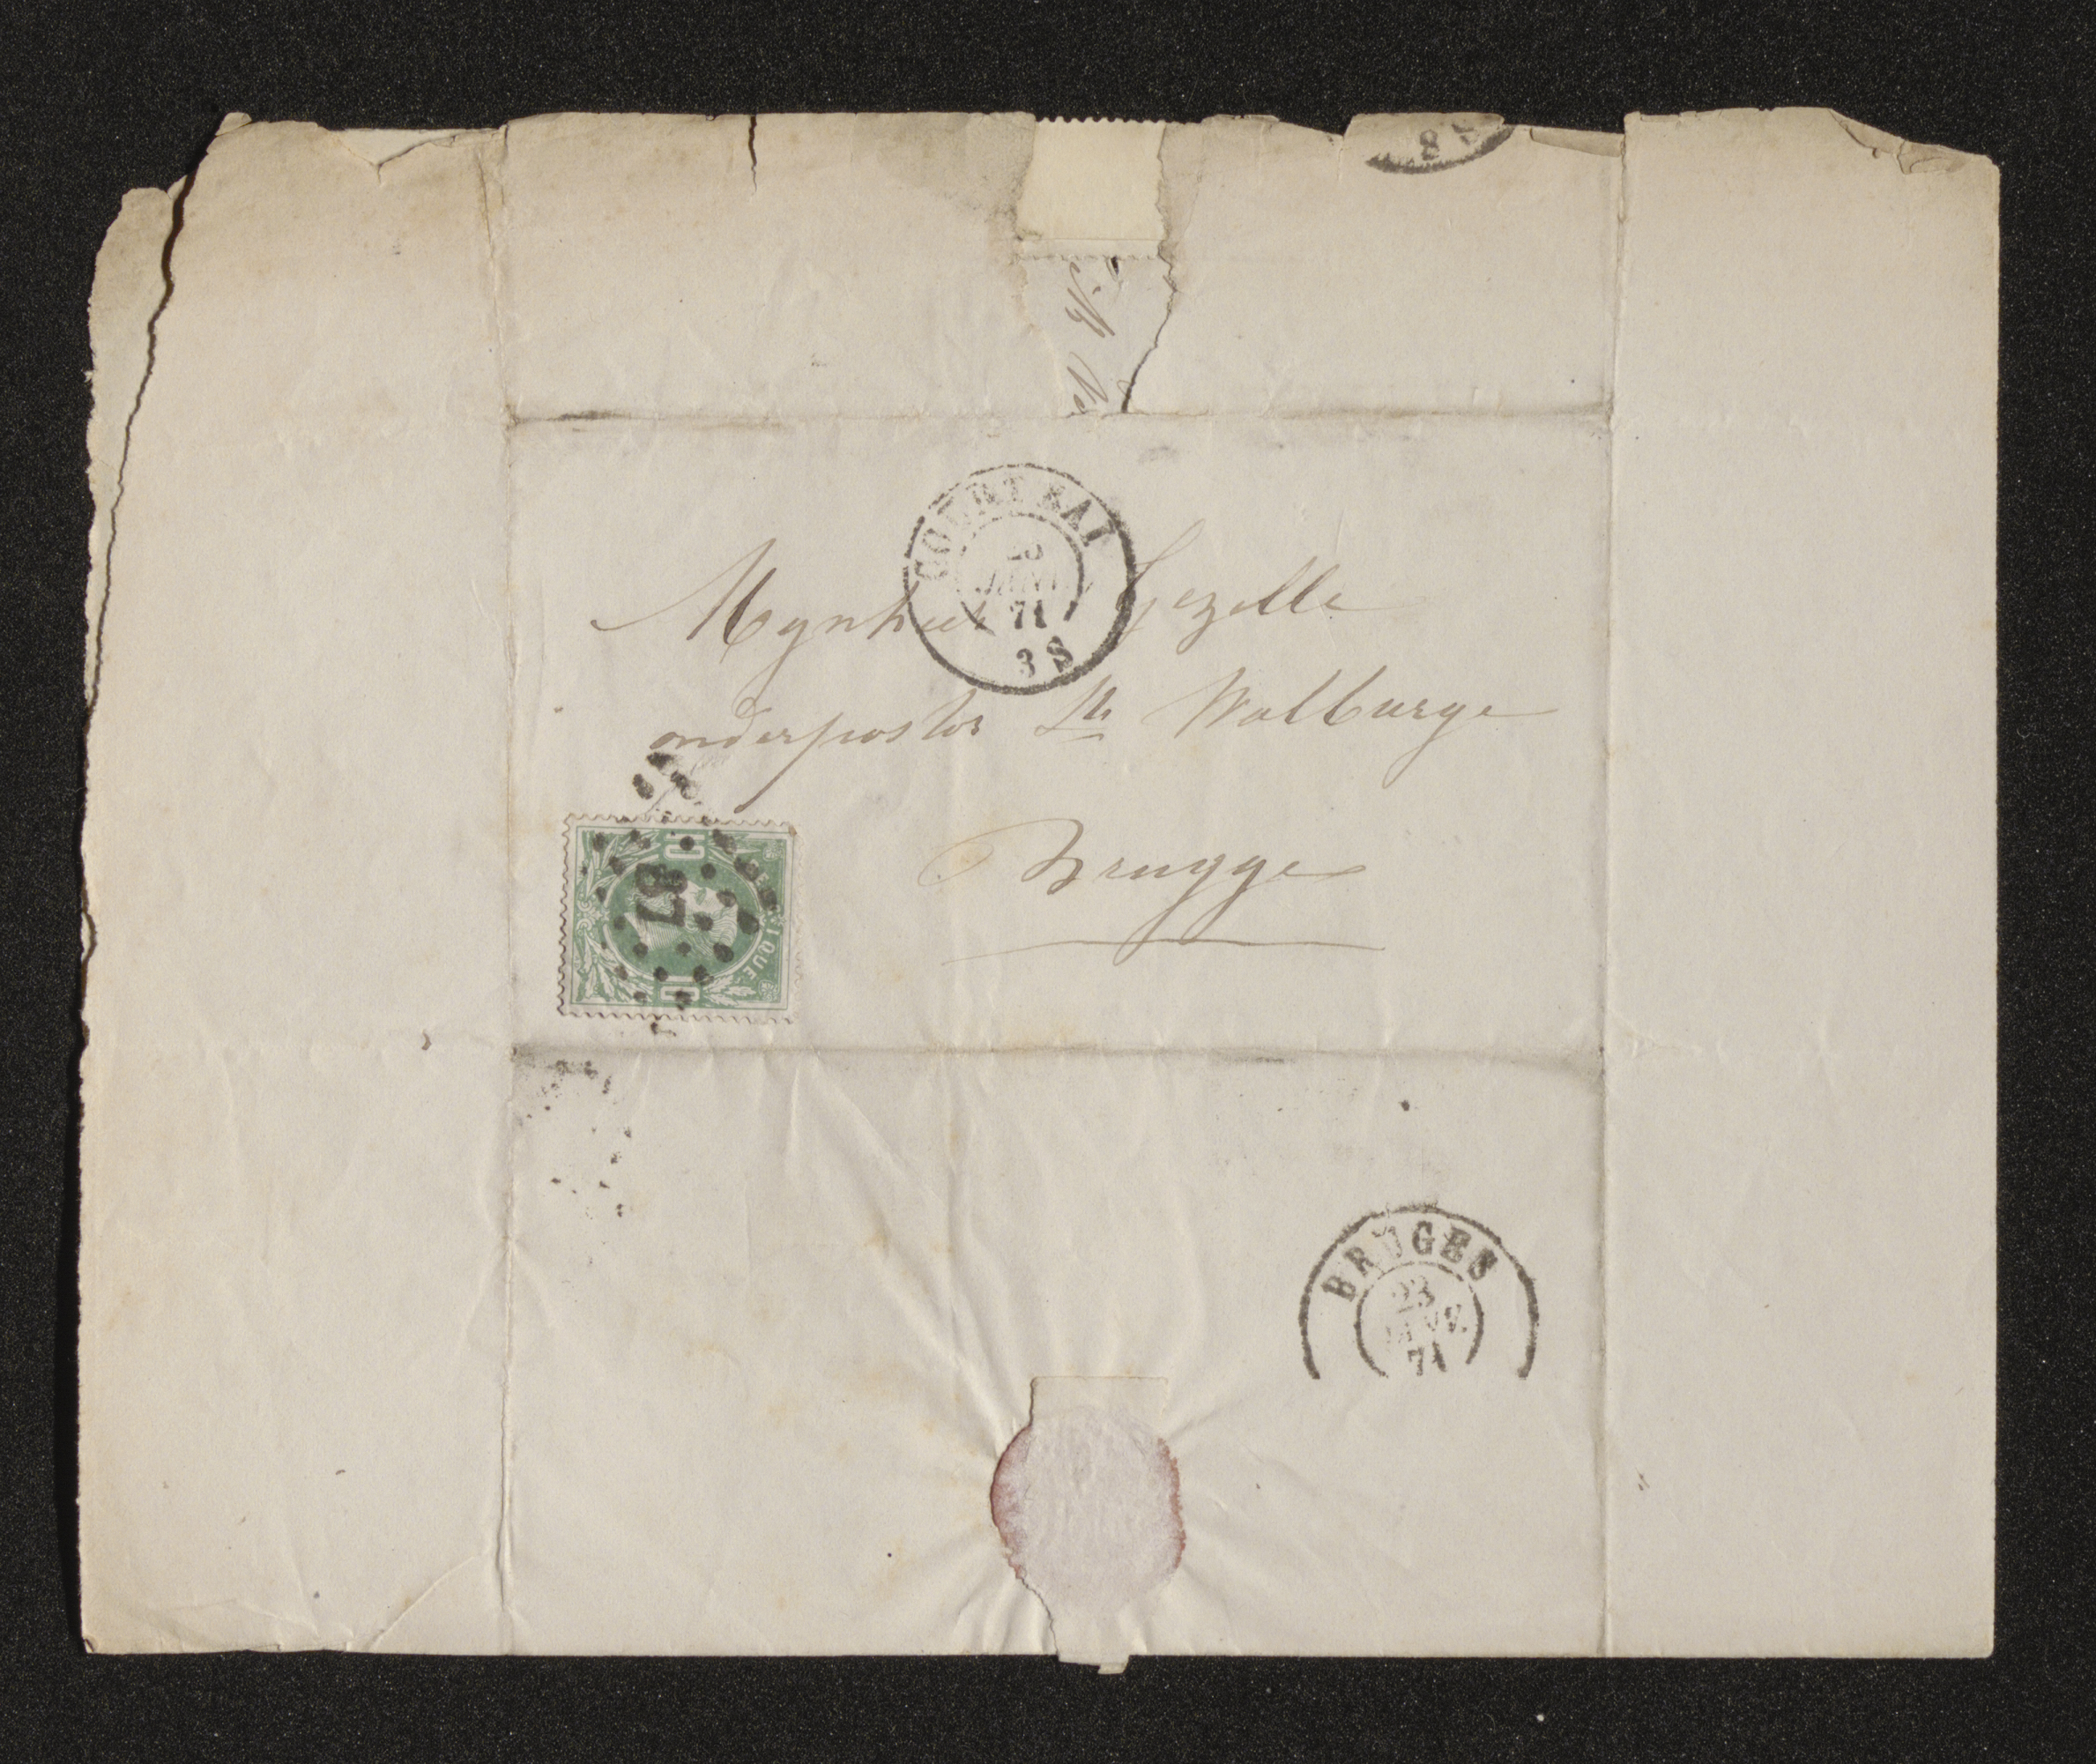 8 S
COURTRAI
23
JANV.
71
3 S
Mynheer Gezelle
onderpastor Ste Walburge
Brugge
10
87
10
BRUGES
23
JANV.
71